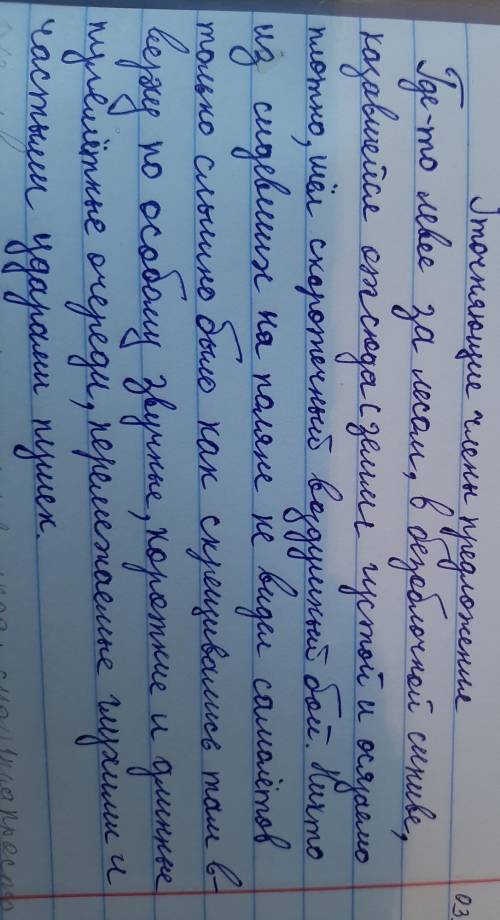 03
Уточняющие члены предложение
Где-то левее за лесом, в безоблочной синиве,
казавшейся отсюда с земли густой и осязаемо
плотно, шёл скоротечный воздушный бой. Никто
из сидевших на поляне не видел самолётов
только слышно было как скрещивались там в-
верху по особому звучные, короткие и длинные
пулемётные очереди, перемежаемые глухими и
частыми ударами пушек.